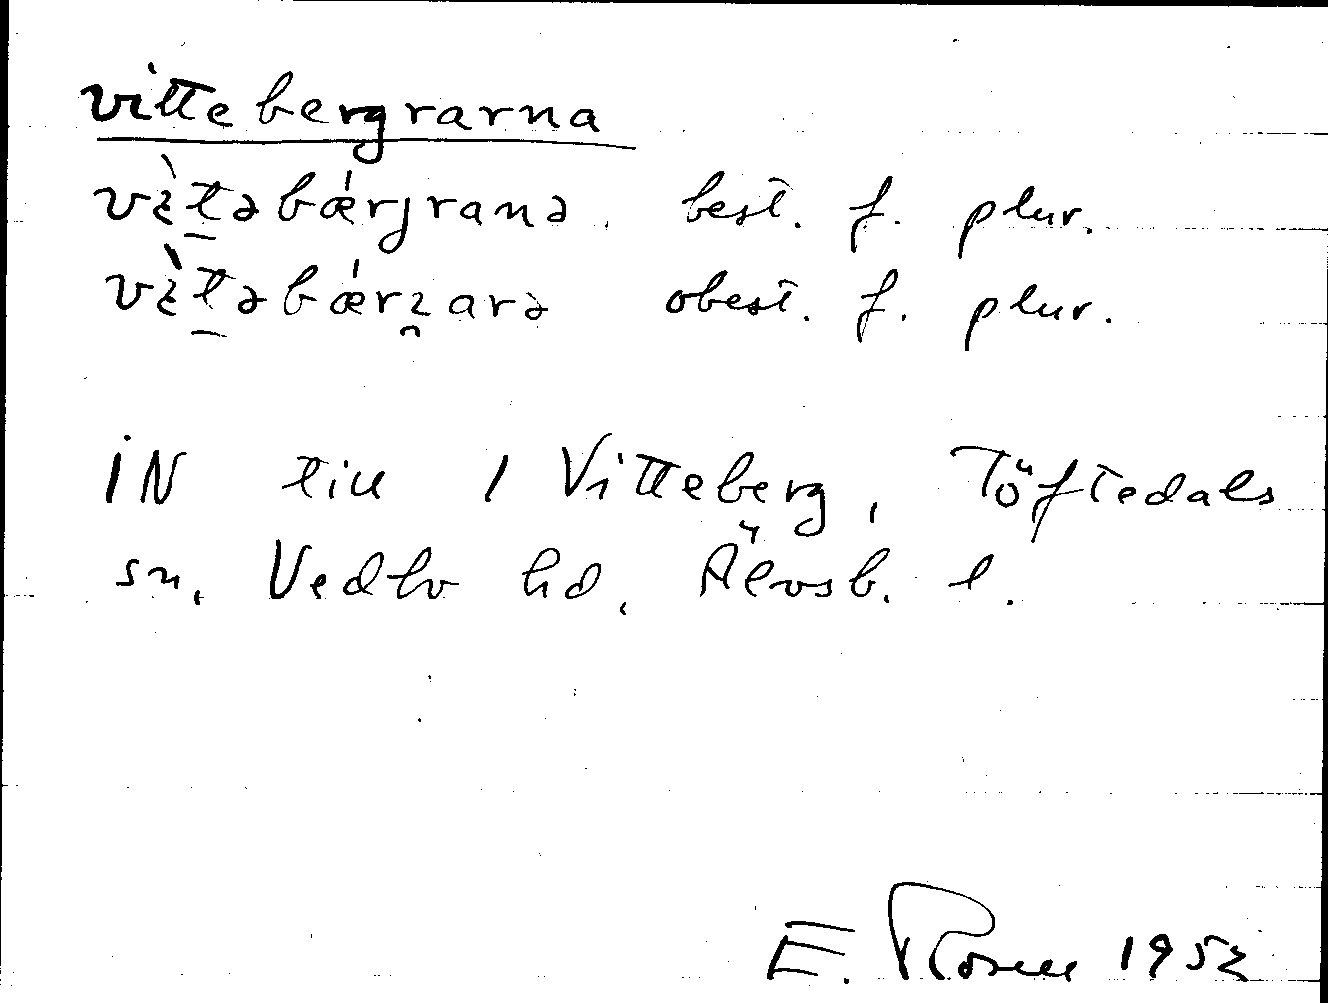 vittebergrarna
vìt̠əbǽrjranə best. f. plur.
best. f. plur.
obest. f. plur.
IN till 1 Vitteberg, Töftedals
sn, Vedbo hd, Älvsb. l.
E. Rosell 1952